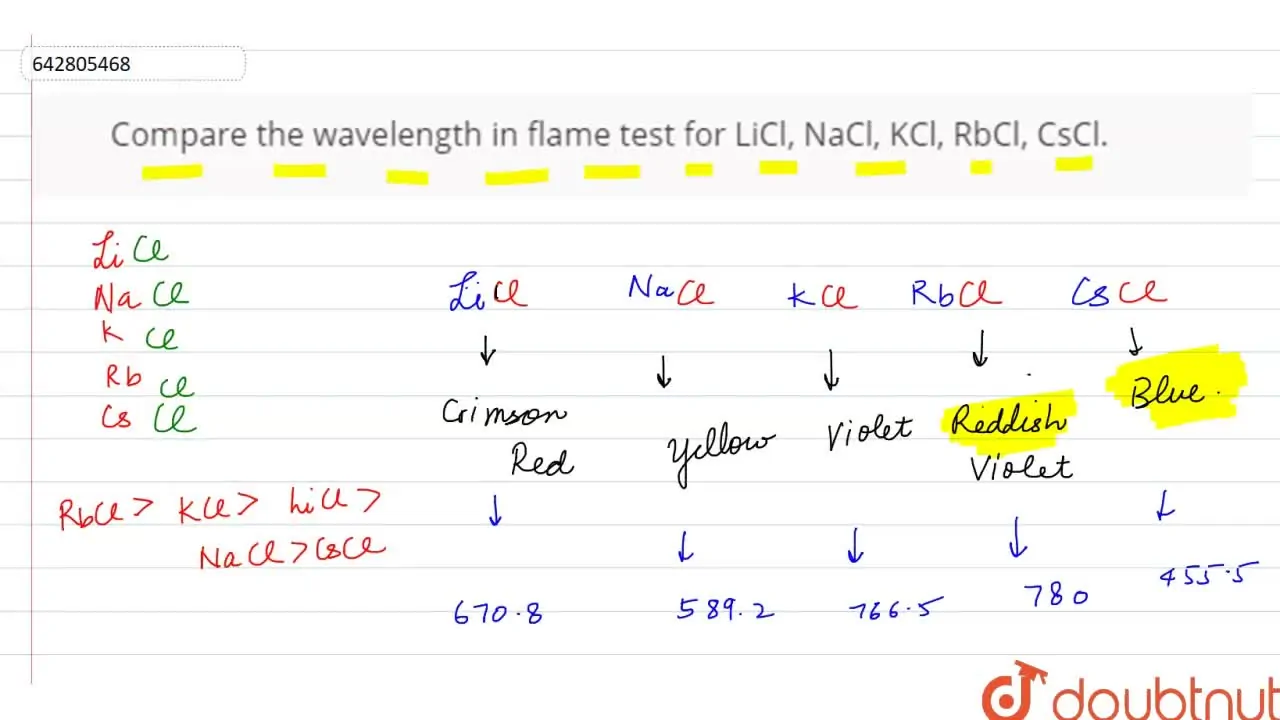 642805468
Compare the wavelength in flame test for LiCl, NaCl, KCl, RbCl, CsCl.
LiCl
NaCl
KCl
RbCl
CsCl
LiCl NaCl KCl RbCl CsCl
Crimson Red
Yellow
Violet
Reddish Violet
Blue.
RbCl > KCl > LiCl >
NaCl > CsCl
670.8 589.2 766.5 780 455.5
doubtnut